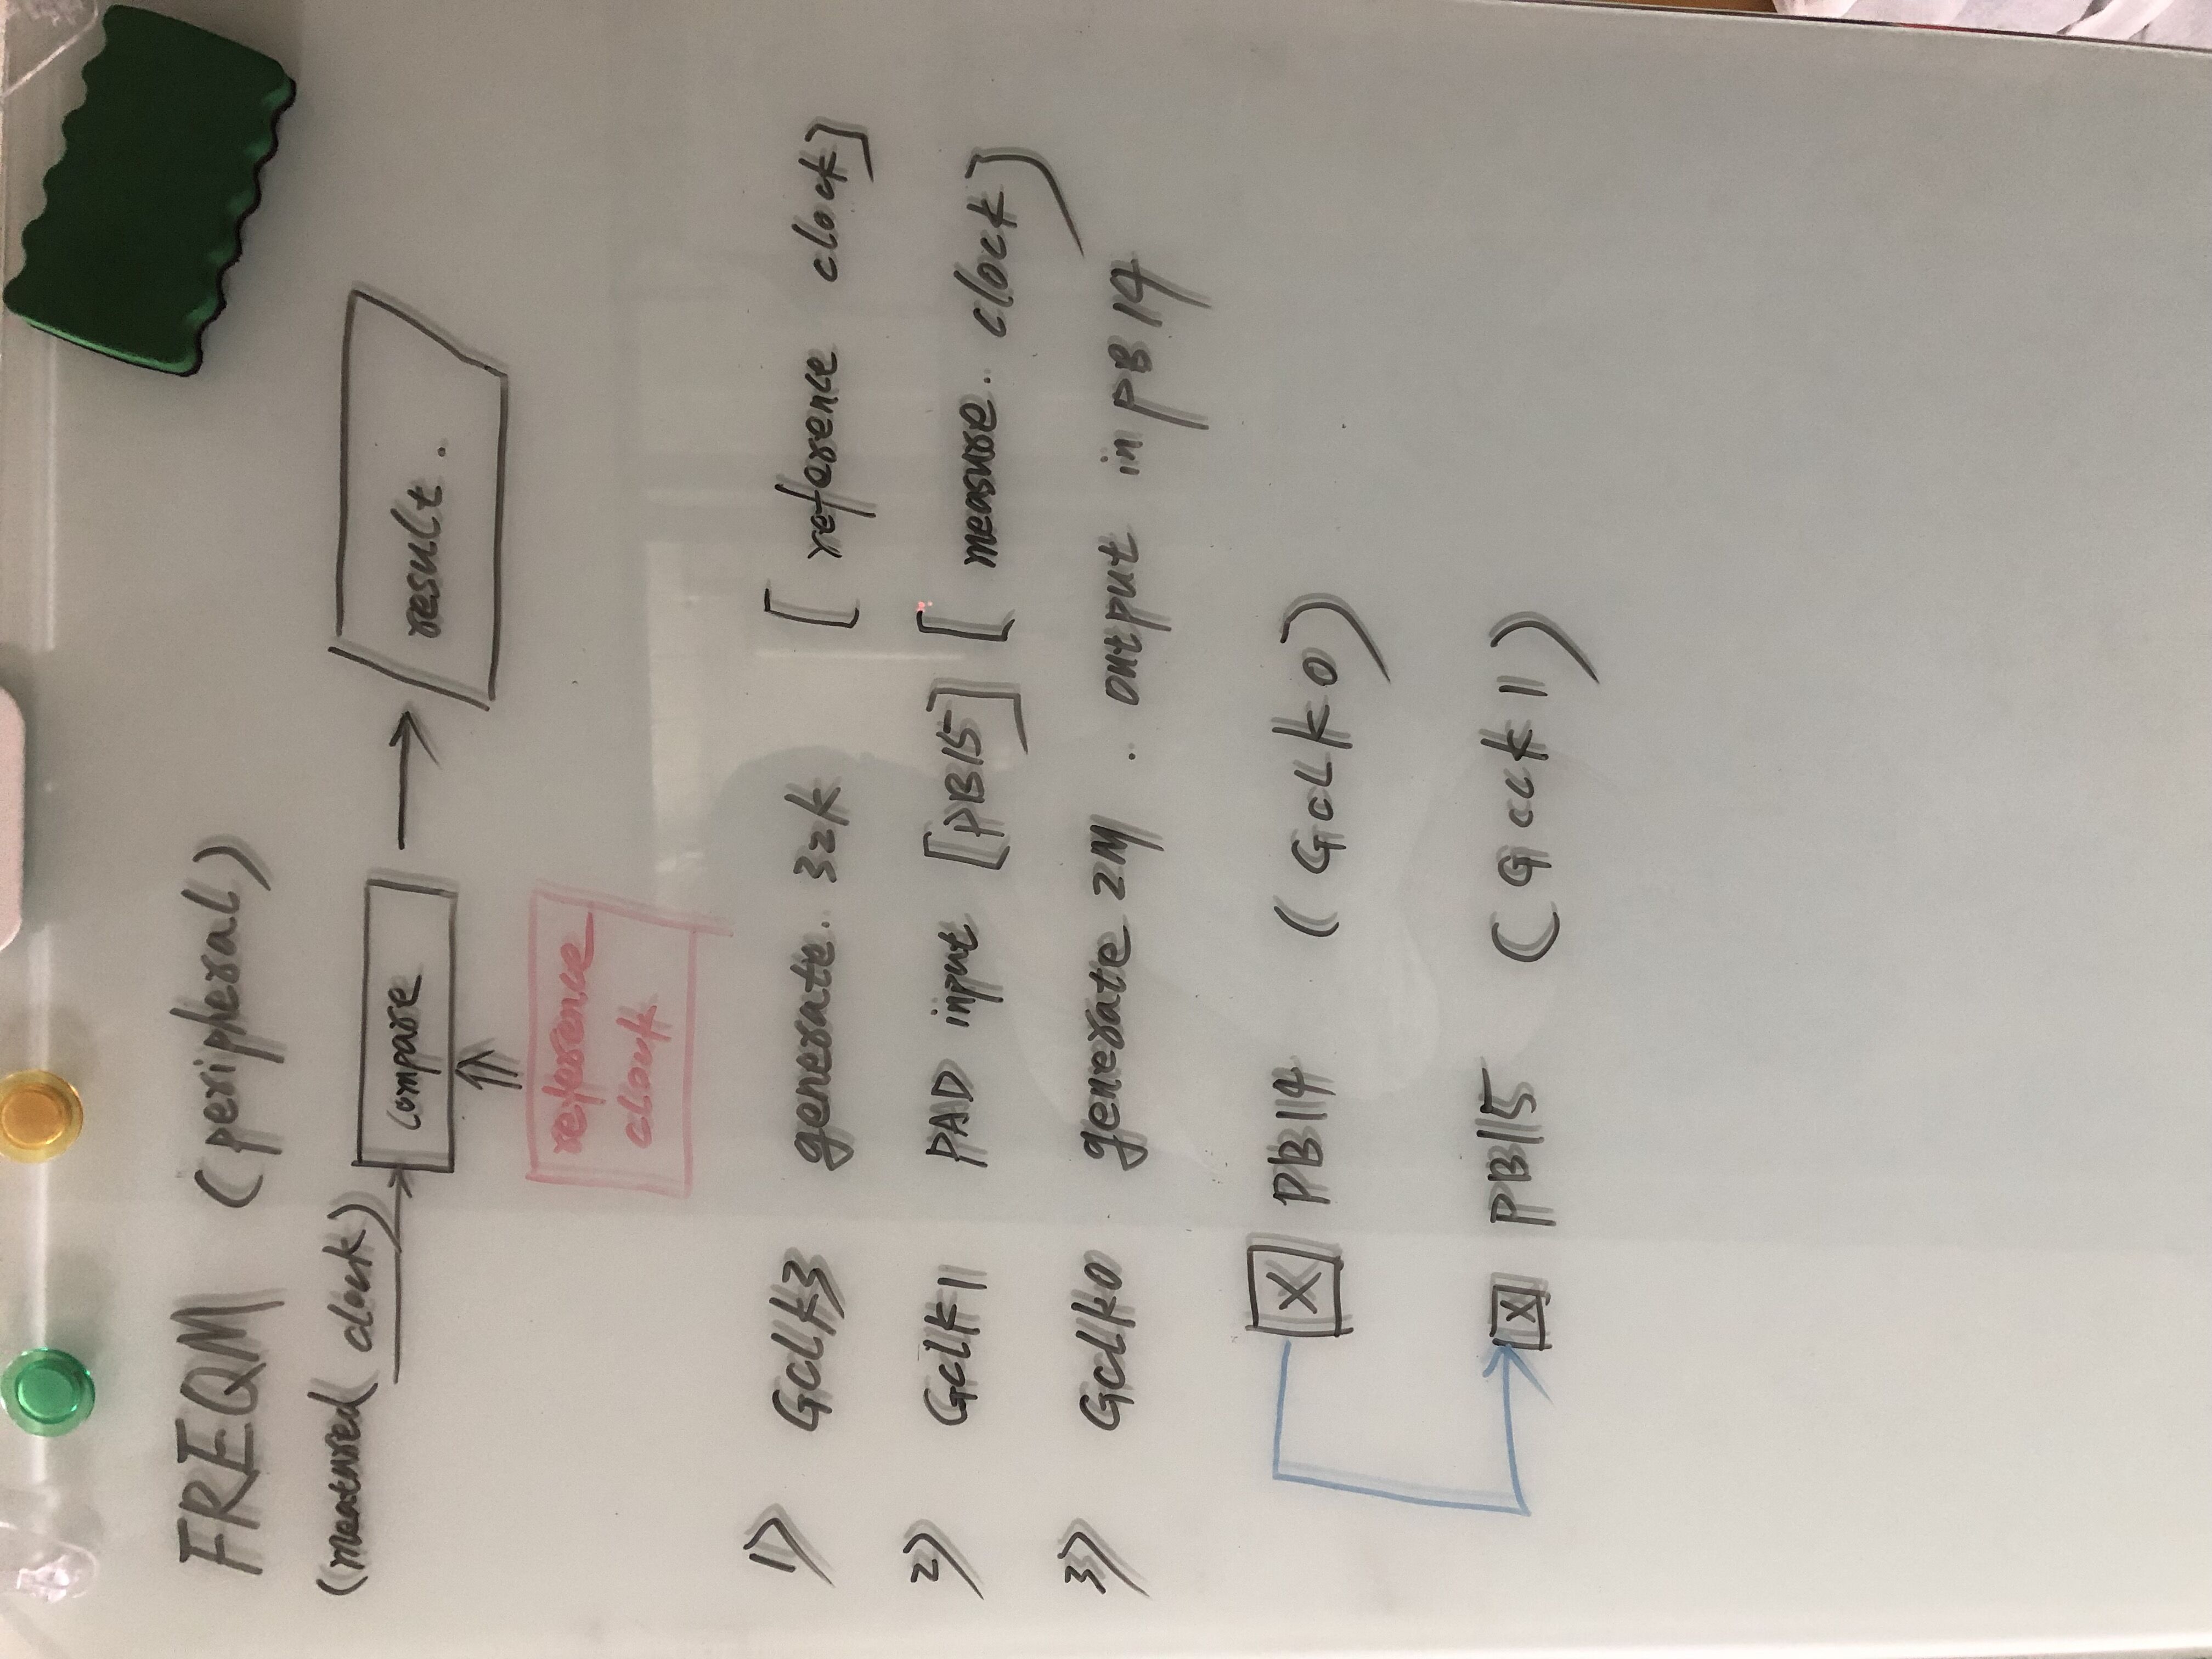 FREQM (peripheral)
(meatured clock)
compare
result.
reference
clouk
1) GCLK3 generate.. 32k [ reference clock]
2) GCLK1 PAD input [PB15] [ measure.. clock]
3) GCLK0 generate 2M .. output in PB14
X PB14 (GCLK0)
X PB15 (GCLK1)